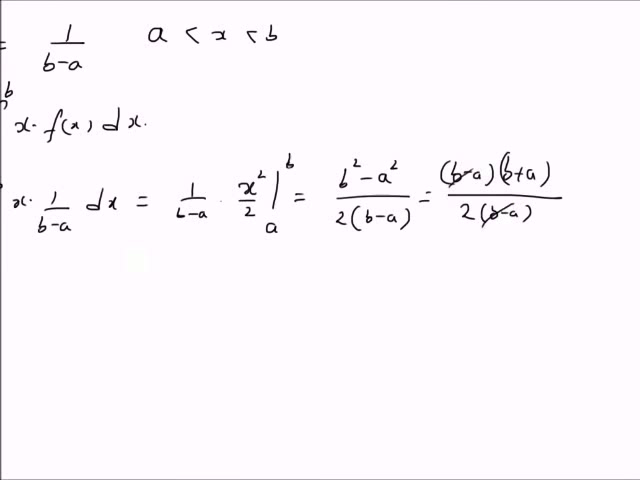 = 1/(b-a) a < x < b
b
x. f(x) dx.
x. 1/(b-a) dx = 1/(b-a) . x²/2 |ₐᵇ = (b² - a²)/(2(b-a)) = ((b-a)(b+a))/(2(b-a))